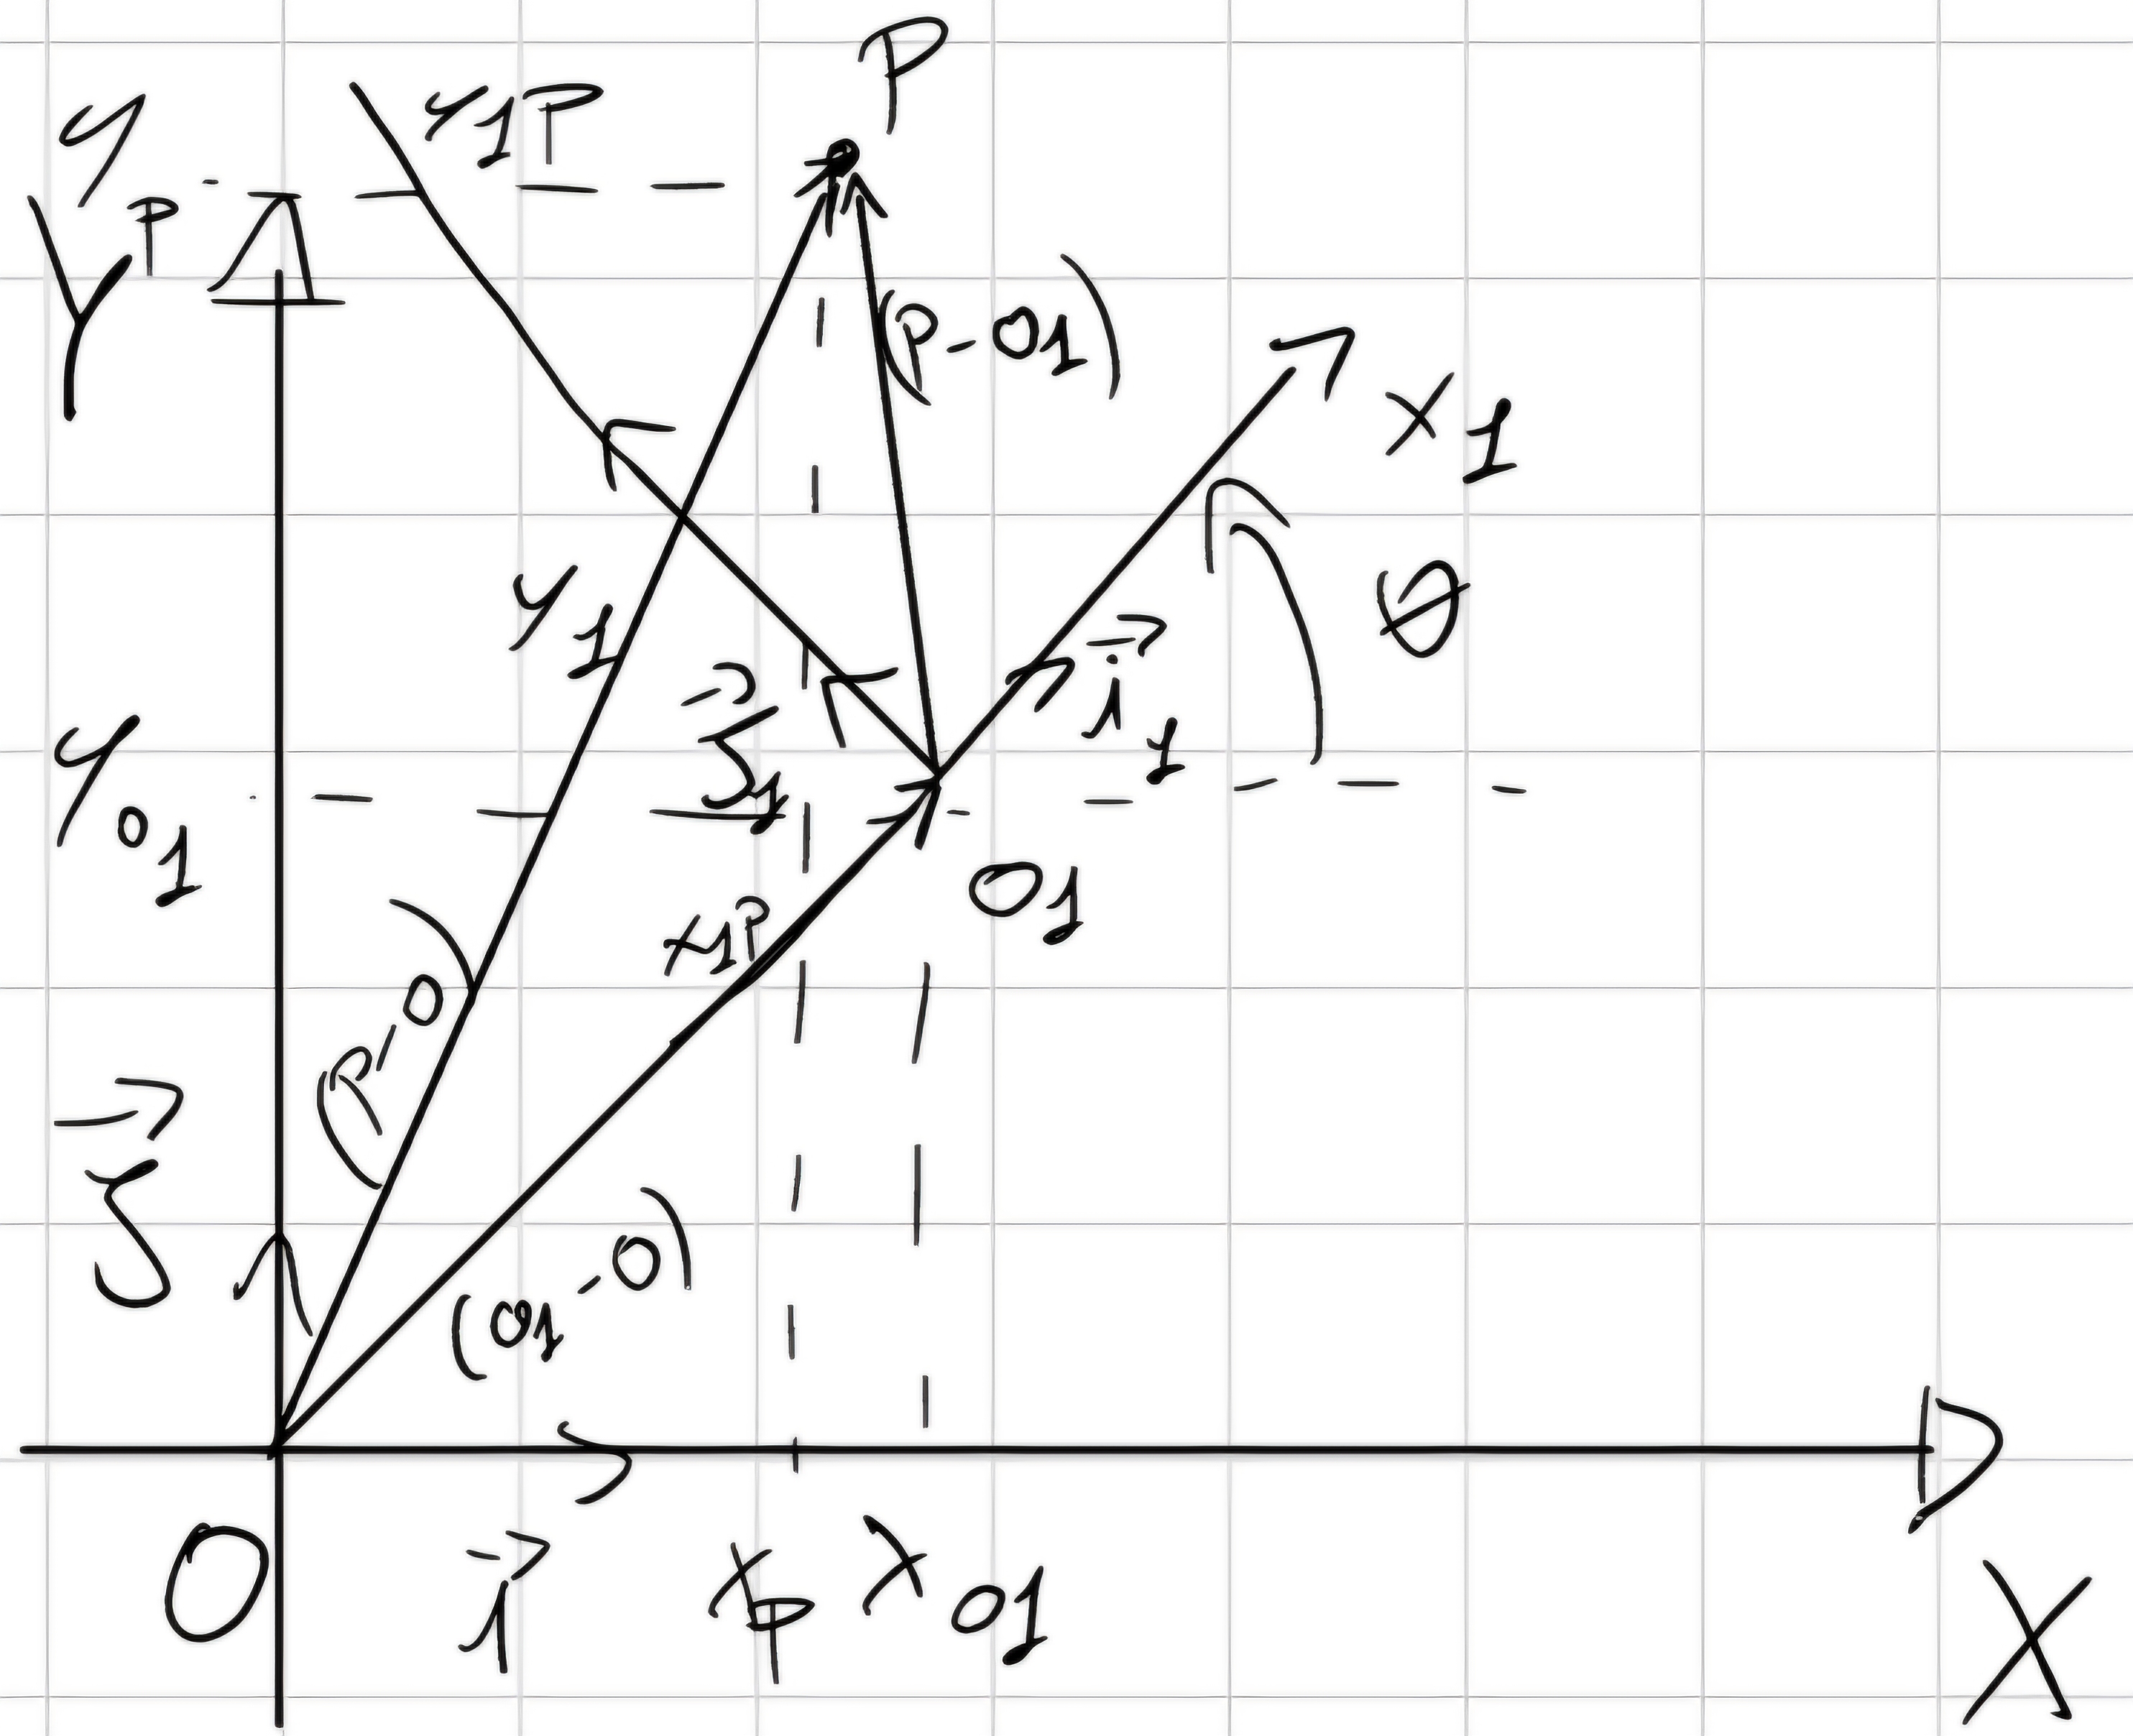 P
y1P
yP
Y
(P-O1)
x1
θ
y1
i1
j1
yO1
O1
x1P
(P-O)
j
(O1-O)
O
i
xP
xO1
X